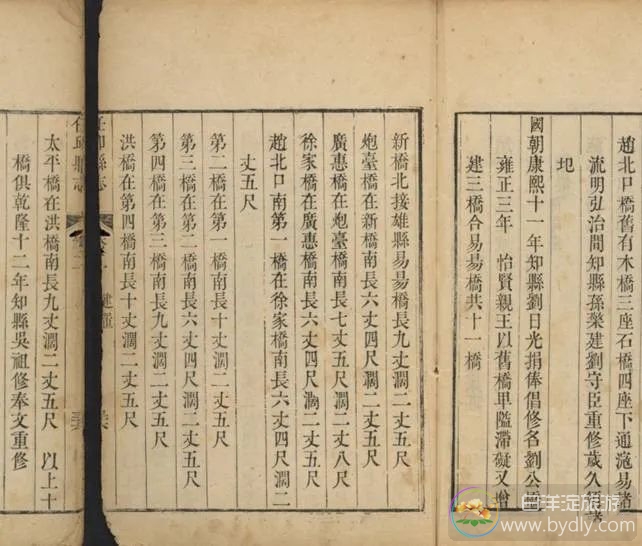 趙北口橋舊有木橋三座石橋四座下通滱易諸
流明弘治間知縣孫榮建劉守臣重修歲久
圯
國朝康熙十一年知縣劉日光捐俸倡修名劉公
雍正三年 怡賢親王以舊橋卑隘滯礙又增
建三橋合易昜橋共十一橋
新橋北接雄縣易昜橋長九丈濶二丈五尺
炮臺橋在新橋南長六丈四尺濶二丈五尺
廣惠橋在炮臺橋南長七丈五尺濶二丈八尺
徐家橋在廣惠橋南長六丈四尺濶二丈五尺
趙北口南第一橋在徐家橋南長六丈四尺濶二
丈五尺
第二橋在第一橋南長十丈濶二丈五尺
第三橋在第二橋南長六丈四尺濶二丈五尺
第四橋在第三橋南長九丈濶二丈五尺
洪橋在第四橋南長十丈濶二丈五尺
任邱縣志
建置
任邱縣志
太平橋在洪橋南長九丈濶二丈五尺 以上十
橋俱乾隆十二年知縣吳祖修奉文重修
白洋淀旅游
www.bydly.com